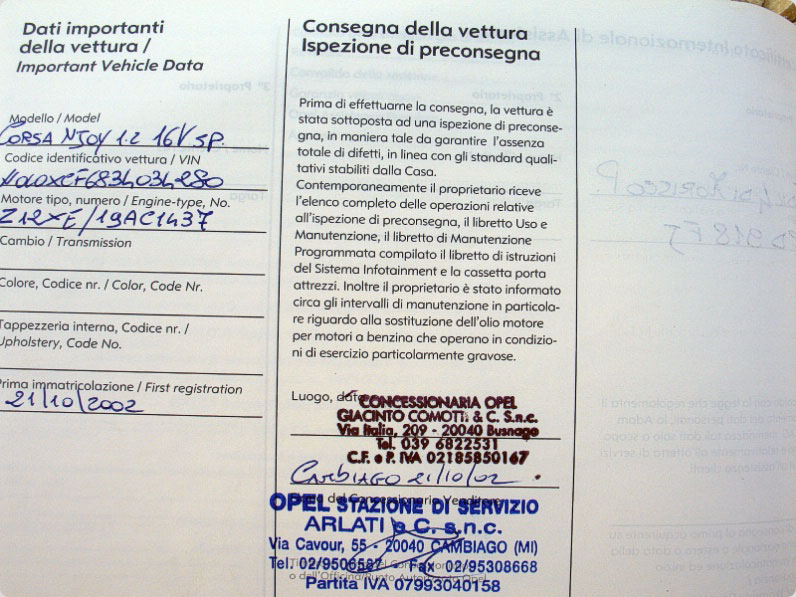 Dati importanti
della vettura /
Important Vehicle Data
Modello / Model
CORSA NJOY 1.2 16V 5P.
Codice identificativo vettura / VIN
W0L0XCF6834034280
Motore tipo, numero / Engine-type, No.
Z12XE/19AC1437
Cambio / Transmission
Colore, Codice nr. / Color, Code Nr.
Tappezzeria interna, Codice nr. /
Upholstery, Code No.
Prima immatricolazione / First registration
21/10/2002
Consegna della vettura
Ispezione di preconsegna
Prima di effettuarne la consegna, la vettura è
stata sottoposta ad una ispezione di preconse-
gna, in maniera tale da garantire l'assenza
totale di difetti, in linea con gli standard quali-
tativi stabiliti dalla Casa.
Contemporaneamente il proprietario riceve
l'elenco completo delle operazioni relative
all'ispezione di preconsegna, il libretto Uso e
Manutenzione, il libretto di Manutenzione
Programmata compilato il libretto di istruzioni
del Sistema Infotainment e la cassetta porta
attrezzi. Inoltre il proprietario è stato informato
circa gli intervalli di manutenzione in particola-
re riguardo alla sostituzione dell'olio motore
per motori a benzina che operano in condizio-
ni di esercizio particolarmente gravose.
Luogo, data
CONCESSIONARIA OPEL
GIACINTO COMOTTI & C. S.n.c.
Via Italia, 209 - 20040 Busnago
Tel. 039 6822531
C.F. e P. IVA 02185850167
CAMBIAGO 21/10/02
del Concessionario Venditore
OPEL STAZIONE DI SERVIZIO
ARLATI & C. s.n.c.
Via Cavour, 55 - 20040 CAMBIAGO (MI)
Tel. 02/9506587 - Fax 02/95308668
o dell'Officina/Punto Opel
Partita IVA 07993040158